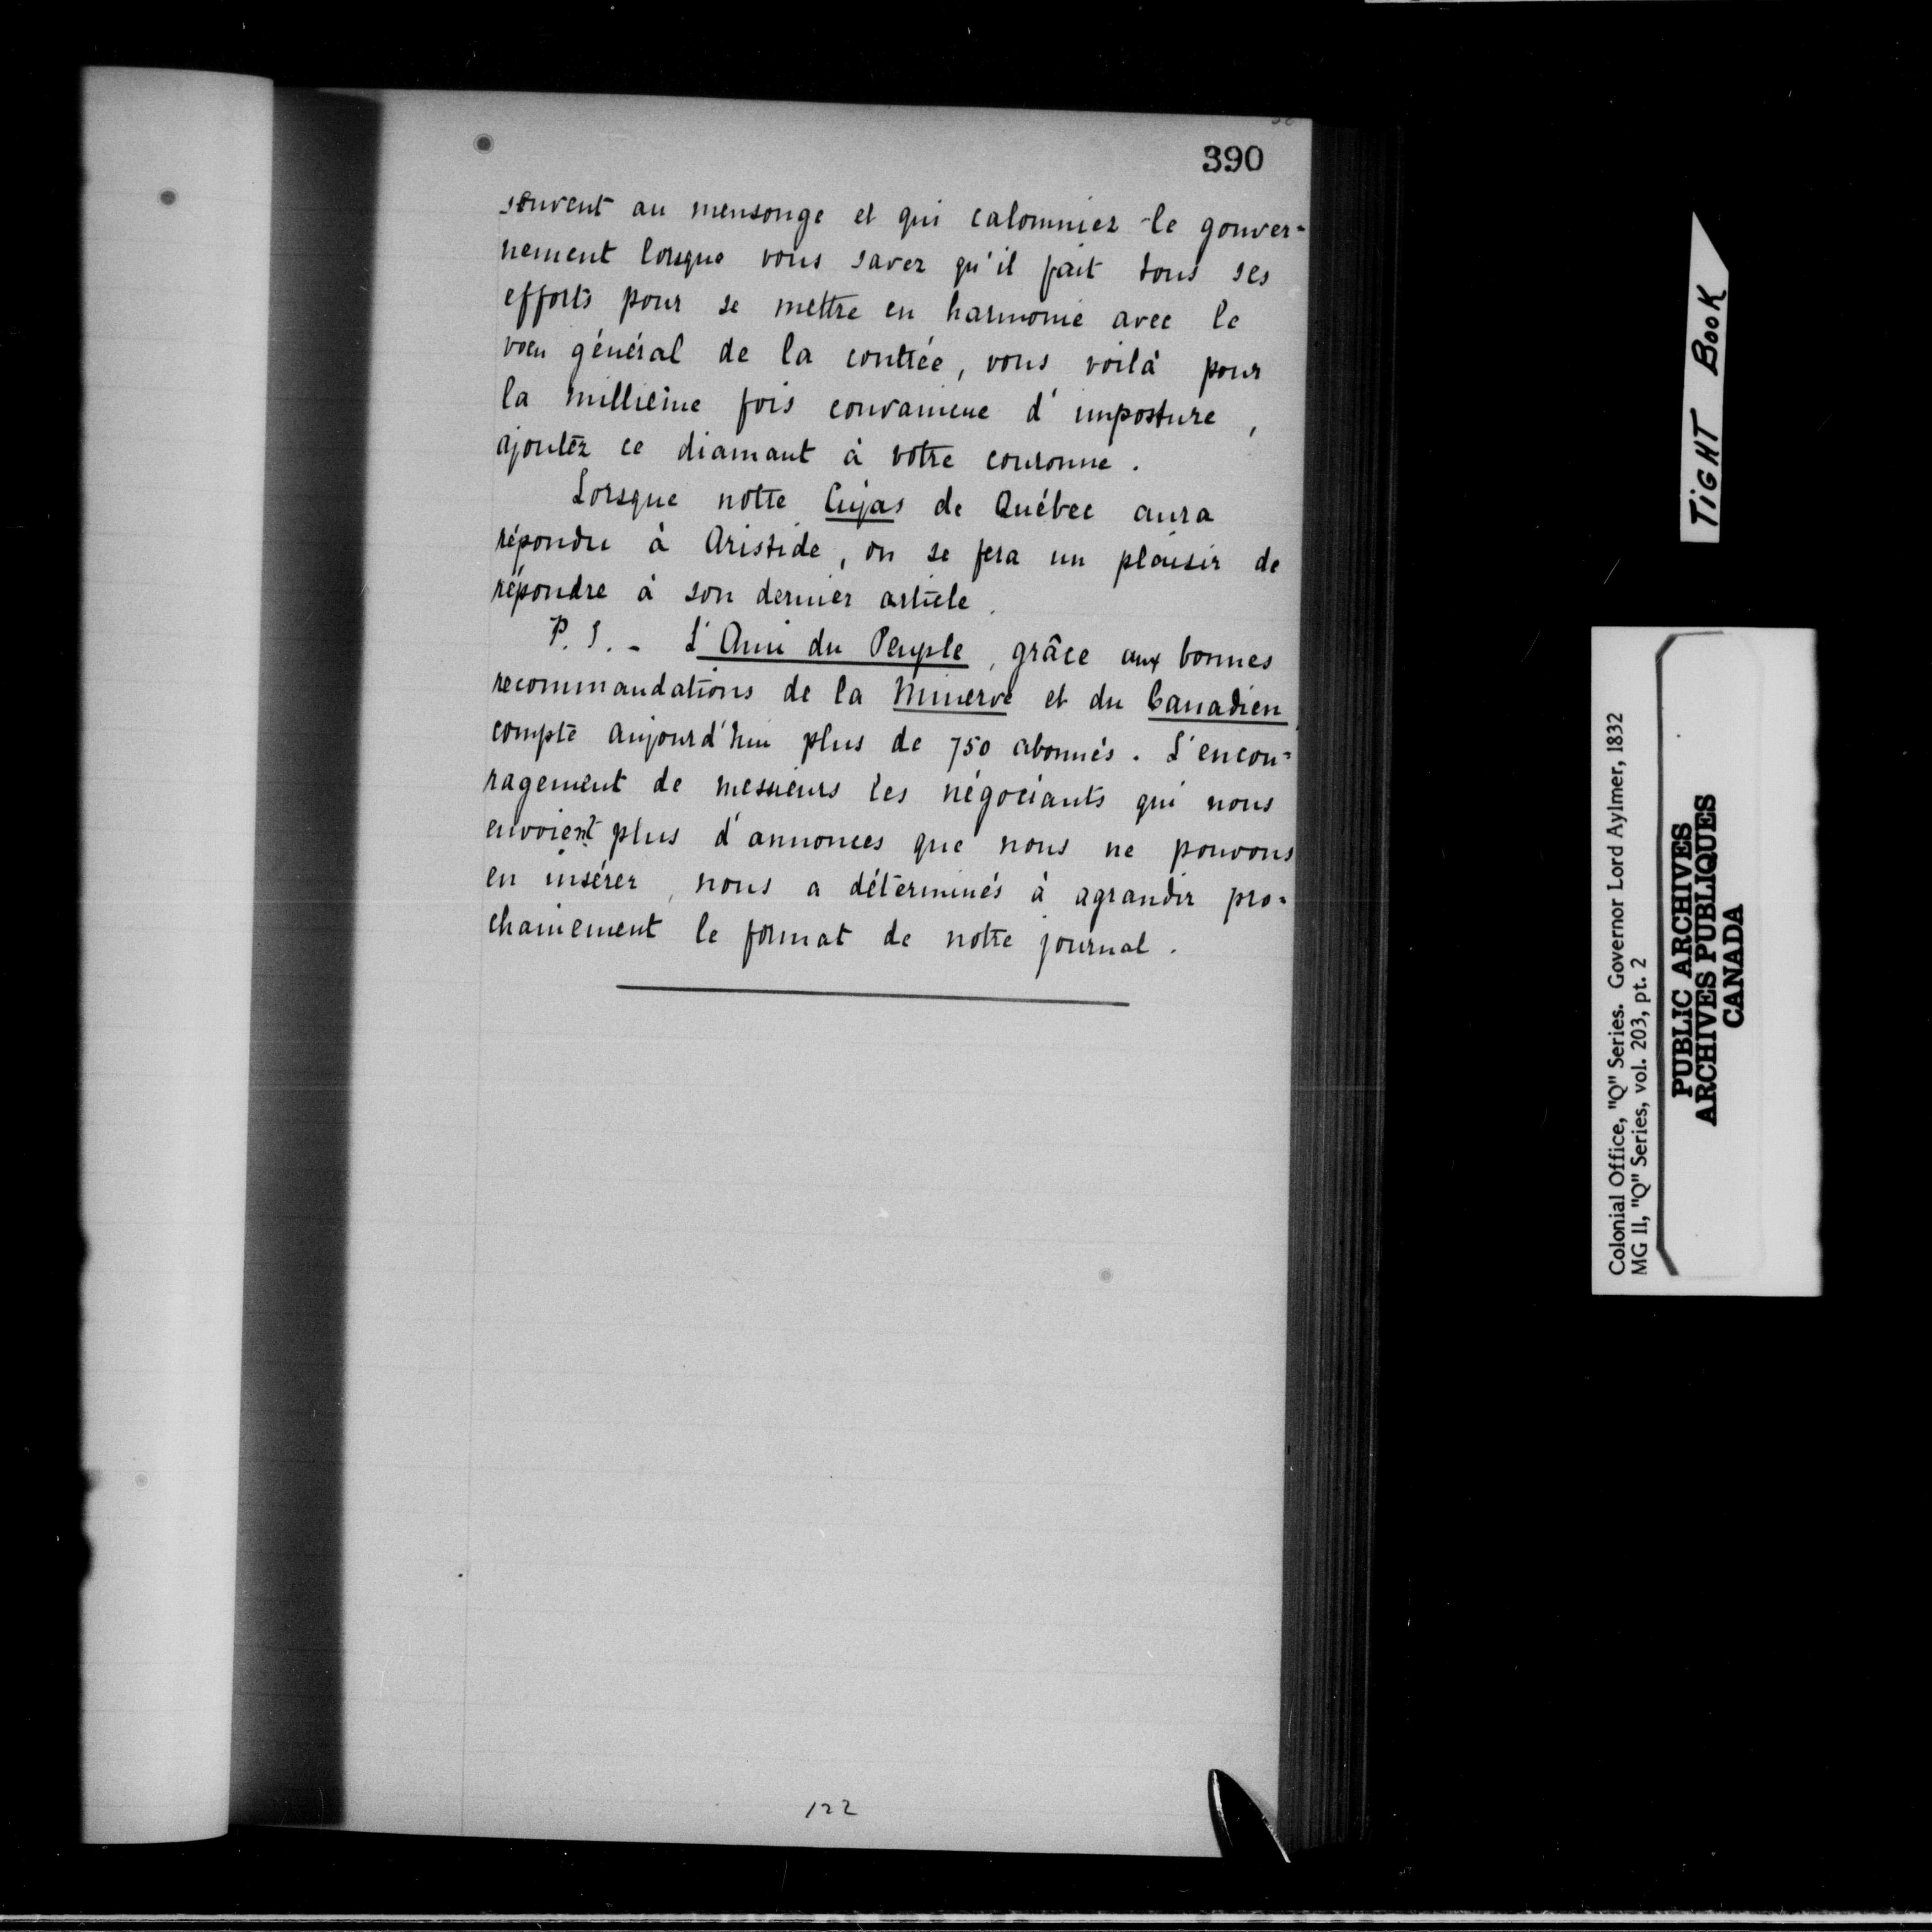 390
souvent au mensonge et qui calomniez le gouver=
nement lorsque vous savez qu'il fait tous ses
efforts pour se mettre en harmonie avec le
vœu général de la contrée, vous voilà pour
la millième fois convaincue d'imposture,
ajoutez ce diamant à votre couronne.
Lorsque notre Cujas de Québec aura
répondu à Aristide, on se fera un plaisir de
répondre à son dernier article.
P. S. - L'Ami du Peuple, grâce aux bonnes
recommandations de la Minerve et du Canadien,
compte aujourd'hui plus de 750 abonnés. L'encou=
ragement de messieurs les négociants qui nous
envoient plus d'annonces que nous ne pouvons
en insérer, nous a déterminés à agrandir pro=
chainement le format de notre journal.
122
TIGHT BOOK
Colonial Office, "Q" Series. Governor Lord Aylmer, 1832
MG 11, "Q" Series, vol. 203, pt. 2
PUBLIC ARCHIVES
ARCHIVES PUBLIQUES
CANADA